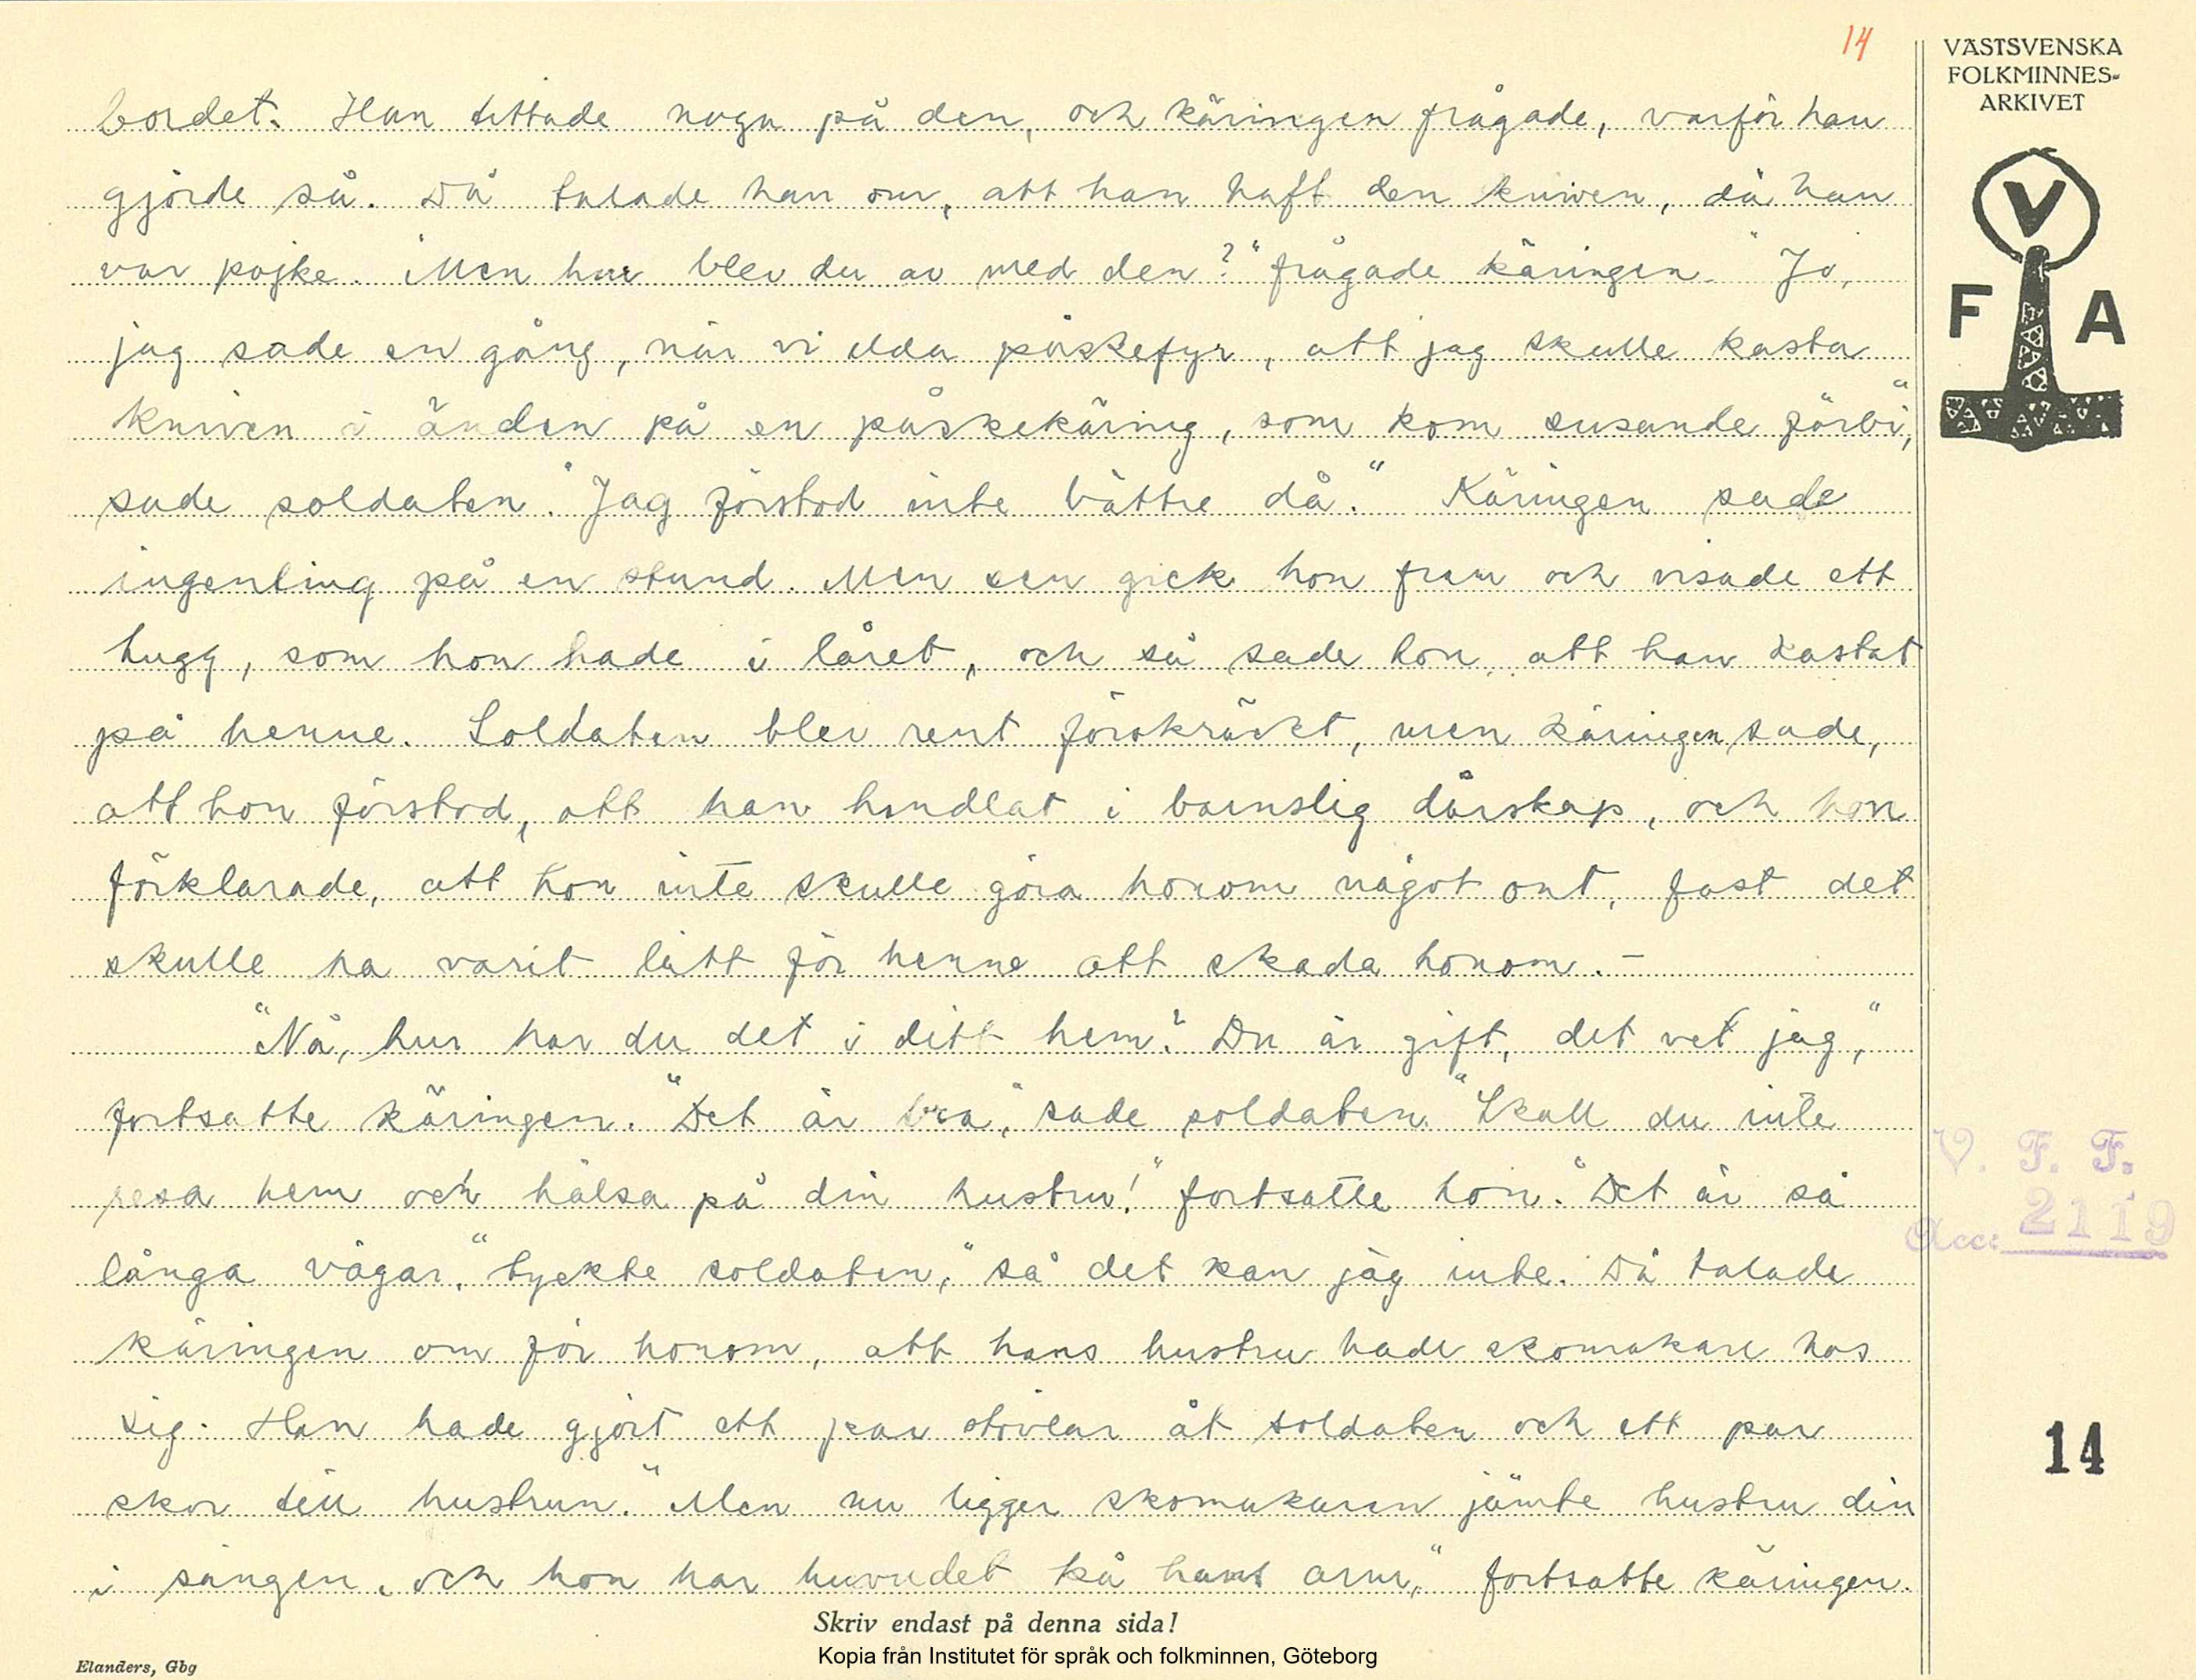 14
VÄSTSVENSKA
FOLKMINNES-
ARKIVET
V
F A
bordet. Han tittade noga på den, och käringen frågade, varför han
gjorde så. Då talade han om, att han haft den kniven, då han
var pojke. "Men hur blev du av med den?" frågade käringen. "Jo,
jag sade en gång, när vi elda påskefyr, att jag skulle kasta
kniven i änden på en påskekäring, som kom susande förbi,"
sade soldaten. "Jag förstod inte bättre då." Käringen sade
ingenting på en stund. Men sen gick hon fram och visade ett
hugg, som hon hade i låret, och så sade hon, att han kastat
på henne. Soldaten blev rent förskräckt, men käringen sade,
att hon förstod, att han handlat i barnslig dårskap, och hon
förklarade, att hon inte skulle göra honom något ont, fast det
skulle ha varit lätt för henne att skada honom. –
"Nå, hur har du det i ditt hem? Du är gift, det vet jag,"
fortsatte käringen. "Det är bra," sade soldaten. "Skall du inte
resa hem och hälsa på din hustru!" fortsatte hon. "Det är så
långa vägar," tyckte soldaten, "så det kan jag inte. Då talade
käringen om för honom, att hans hustru hade skomakare hos
sig. Han hade gjort ett par stövlar åt soldaten och ett par
skor till hustrun. "Men nu ligger skomakaren jämte hustru din
i sängen, och hon har huvudet på hans arm," fortsatte käringen.
V. F. F.
Acc: 2119
14
Skriv endast på denna sida!
Kopia från Institutet för språk och folkminnen, Göteborg
Elanders, Gbg